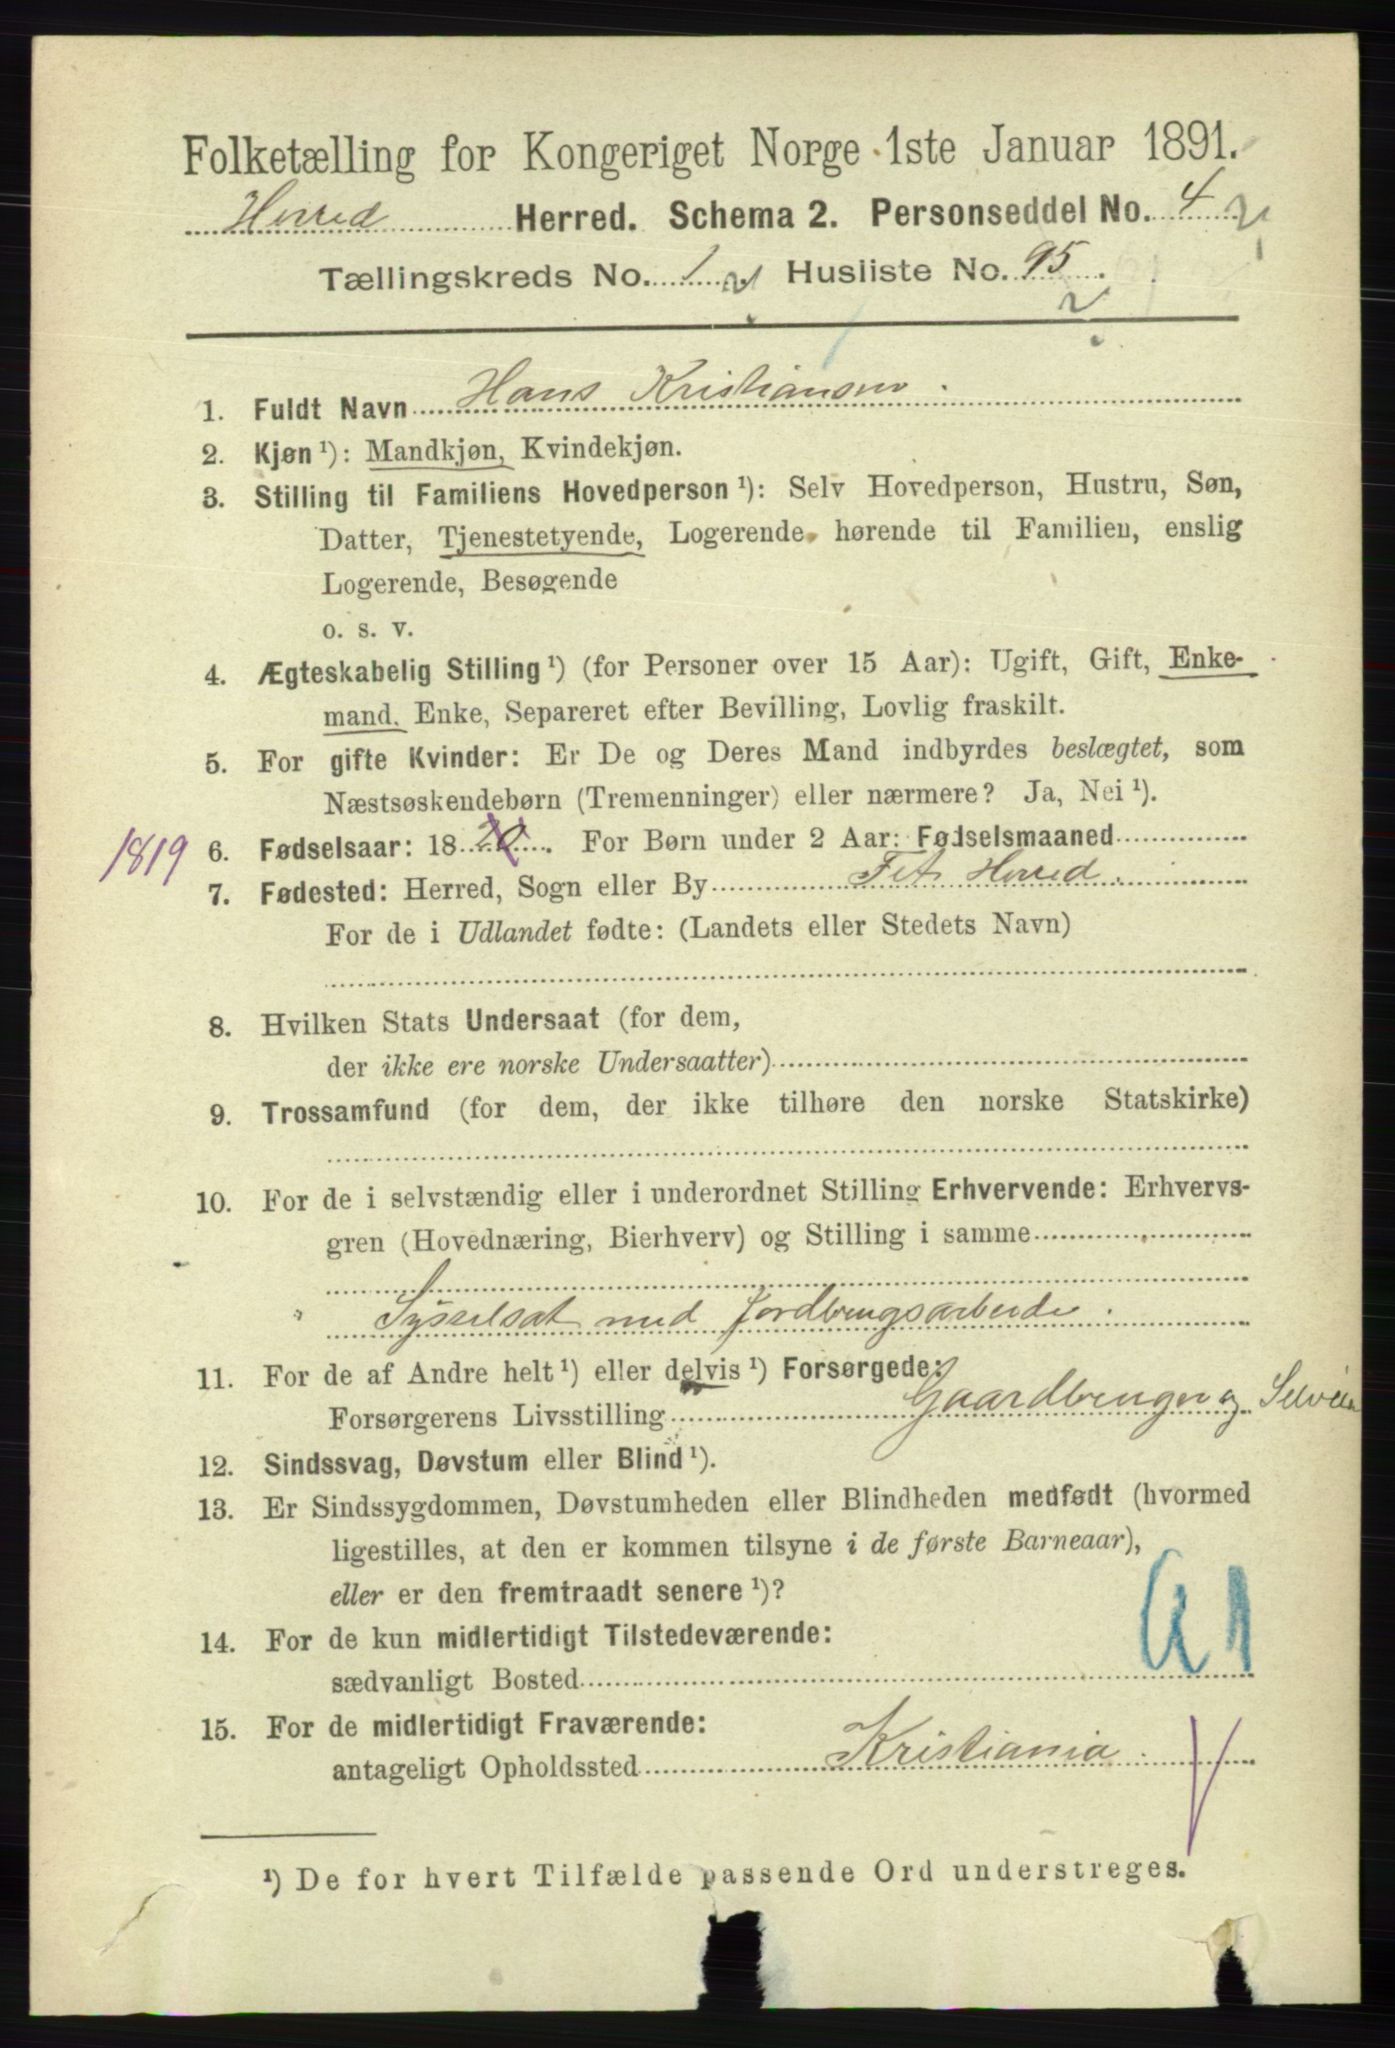 Folketælling for Kongeriget Norge 1ste Januar 1891.
Herred Herred. Schema 2. Personseddel No. 4
Tællingskreds No. 1 Husliste No. 95.
1. Fuldt Navn Hans Kristiansen.
2. Kjøn ¹): Mandkjøn, Kvindekjøn.
3. Stilling til Familiens Hovedperson ¹): Selv Hovedperson, Hustru, Søn,
Datter, Tjenestetyende, Logerende hørende til Familien, enslig
Logerende, Besøgende
o. s. v.
4. Ægteskabelig Stilling ¹) (for Personer over 15 Aar): Ugift, Gift, Enke-
mand, Enke, Separeret efter Bevilling, Lovlig fraskilt.
5. For gifte Kvinder: Er De og Deres Mand indbyrdes beslægtet, som
Næstsøskendebørn (Tremenninger) eller nærmere? Ja, Nei ¹).
1819 6. Fødselsaar: 1820. For Børn under 2 Aar: Fødselsmaaned
7. Fødested: Herred, Sogn eller By Fet Herred.
For de i Udlandet fødte: (Landets eller Stedets Navn)
8. Hvilken Stats Undersaat (for dem,
der ikke ere norske Undersaatter)
9. Trossamfund (for dem, der ikke tilhøre den norske Statskirke)
10. For de i selvstændig eller i underordnet Stilling Erhvervende: Erhvervs-
gren (Hovednæring, Bierhverv) og Stilling i samme
Sysselsat med Jordbrugsarbeide.
11. For de af Andre helt ¹) eller delvis ¹) Forsørgede:
Forsørgerens Livsstilling Gaardbruger og Selveier
12. Sindssvag, Døvstum eller Blind ¹).
13. Er Sindssygdommen, Døvstumheden eller Blindheden medfødt (hvormed
ligestilles, at den er kommen tilsyne i de første Barneaar),
eller er den fremtraadt senere ¹)?
14. For de kun midlertidigt Tilstedeværende:
sædvanligt Bosted
a1
15. For de midlertidigt Fraværende:
antageligt Opholdssted Kristiania.
¹) De for hvert Tilfælde passende Ord understreges.